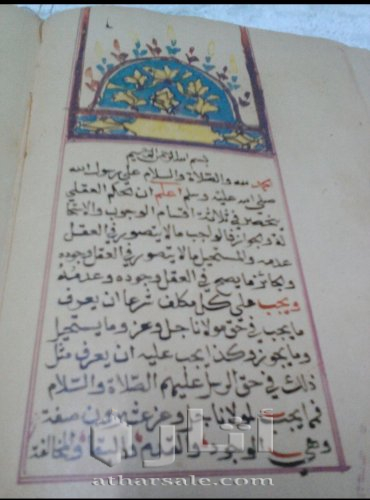 بسم الله الرحمن الرحيم
الحمد لله والصلاة والسلام على رسول الله
صلى الله عليه وسلم اعلم ان الحكم العقلي
ينحصر في ثلاثة اقسام الوجوب والاستحا
لة والجواز فالواجب ما لا يتصور في العقل
عدمه والمستحيل ما لا يتصور في العقل وجوده
والجائز ما يصح في العقل وجوده وعدمه
ويجب على كل مكلف شرعا ان يعرف
ما يجب في حق مولانا جل وعز وما يستحيل
وما يجوز وكذا يجب عليه ان يعرف مثل
ذلك في حق الرسل عليهم الصلاة والسلام
فمما يجب لمولانا جل وعز عشرون صفة
وهي الوجود والقدم والبقا والمخالفة
athaarsale.com